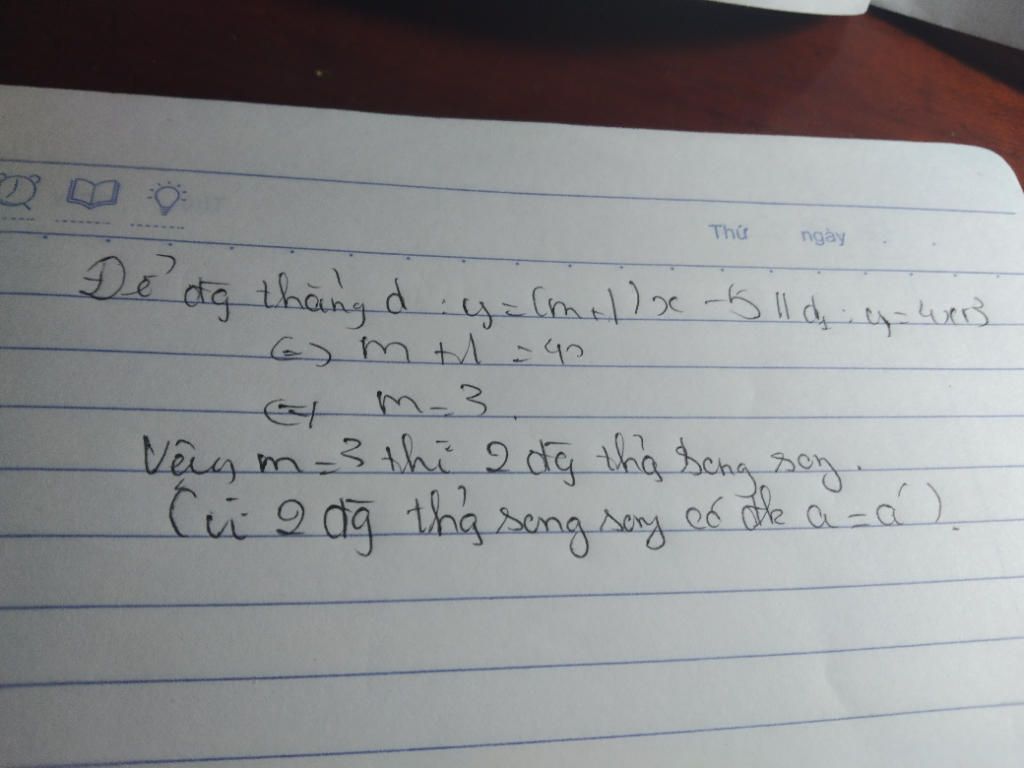 Thứ ngày
Để đg thẳng d : y = (m+1)x - 5 // d₁ : y = 4x+3
<=> m + 1 = 4
<=> m = 3.
Vậy m = 3 thì 2 đg thg song song.
(vì 2 đg thg song song có đk a = a').